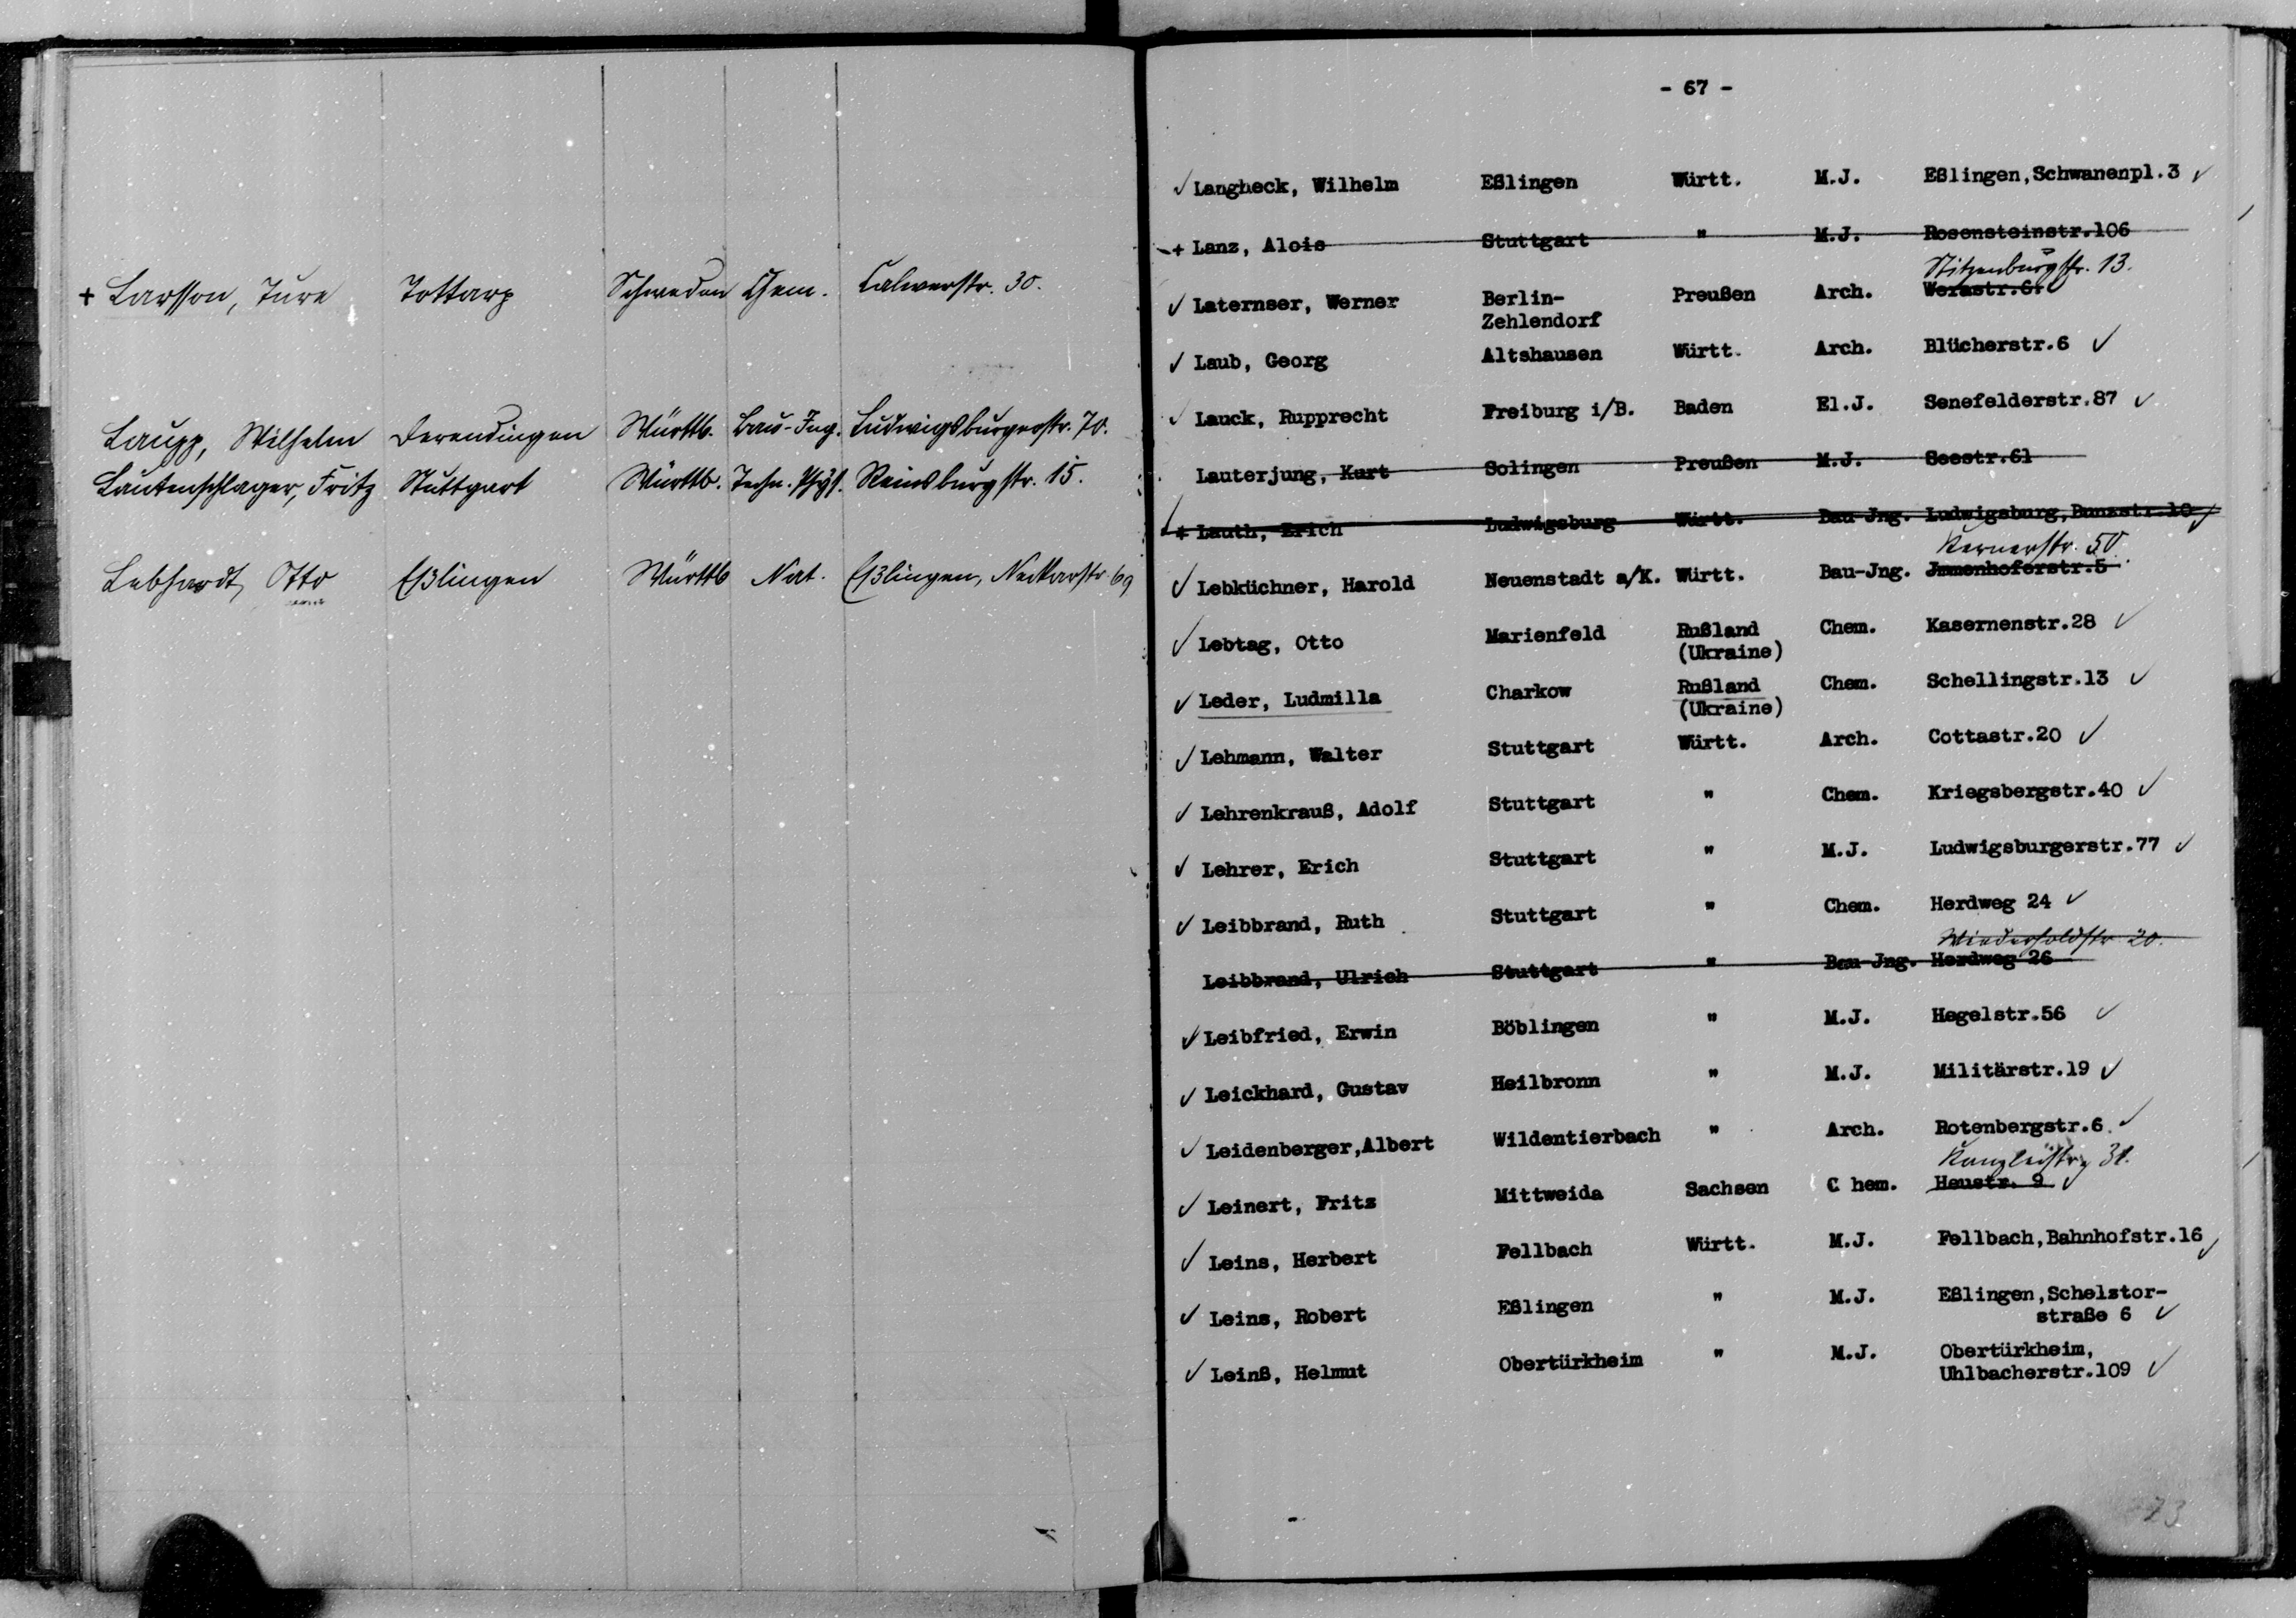 + Larsson, Ture Tottarp Schweden Chem. Calwerstr. 30.
Laupp, Wilhelm Derendingen Württb. Bau-Ing. Ludwigsburgerstr. 70.
Lautenschlager, Fritz Stuttgart Württb. Techn. Phys. Reinsburgstr. 15.
Lebhardt, Otto Eßlingen Württb Nat. Eßlingen, Neckarstr. 69
- 67 -
✓ Langheck, Wilhelm Eßlingen Württ. M.J. Eßlingen,Schwanenpl.3 ✓
+ Lanz, Alois Stuttgart " M.J. Rosensteinstr.106
Stitzenburgstr. 13.
✓ Laternser, Werner Berlin- Preußen Arch. Werastr.61 ✓
Zehlendorf
✓ Laub, Georg Altshausen Württ. Arch. Blücherstr.6 ✓
✓ Lauck, Rupprecht Freiburg i/B. Baden El.J. Senefelderstr.87 ✓
Lauterjung, Kurt Solingen Preußen M.J. Seestr.61
+ Lauth, Erich Ludwigsburg Württ. Bau-Jng. Ludwigsburg,Bunzstr.10 ✓
Kernerstr. 50.
✓ Lebküchner, Harold Neuenstadt a/K. Württ. Bau-Jng. Jmmenhoferstr.5
✓ Lebtag, Otto Marienfeld Rußland Chem. Kasernenstr.28 ✓
(Ukraine)
✓ Leder, Ludmilla Charkow Rußland Chem. Schellingstr.13 ✓
(Ukraine)
✓ Lehmann, Walter Stuttgart Württ. Arch. Cottastr.20 ✓
✓ Lehrenkrauß, Adolf Stuttgart " Chem. Kriegsbergstr.40 ✓
✓ Lehrer, Erich Stuttgart " M.J. Ludwigsburgerstr.77 ✓
✓ Leibbrand, Ruth Stuttgart " Chem. Herdweg 24 ✓
Wiederholdstr 20.
Leibbrand, Ulrich Stuttgart " Bau-Jng. Herdweg 26
✓ Leibfried, Erwin Böblingen " M.J. Hegelstr.56 ✓
✓ Leickhard, Gustav Heilbronn " M.J. Militärstr.19 ✓
✓ Leidenberger,Albert Wildentierbach " Arch. Rotenbergstr.6. ✓
Kanzleistr. 31.
✓ Leinert, Fritz Mittweida Sachsen C hem. Heustr. 9 ✓
✓ Leins, Herbert Fellbach Württ. M.J. Fellbach,Bahnhofstr.16 ✓
✓ Leins, Robert Eßlingen " M.J. Eßlingen,Schelztor-
straße 6 ✓
✓ Leinß, Helmut Obertürkheim " M.J. Obertürkheim,
Uhlbacherstr.109 ✓
73